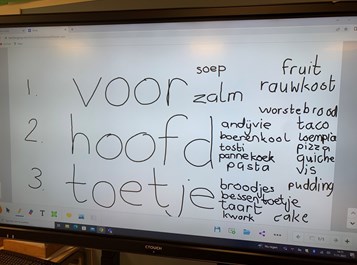 1. voor
soep
zalm
fruit
rauwkost
worstebrood
2. hoofd
andijvie
boerenkool
tosti
pannekoek
pasta
taco
loempia
pizza
quiche
vis
3. toetje
broodjes
bessentoetje
taart
kwark
pudding
cake
CTOUCH